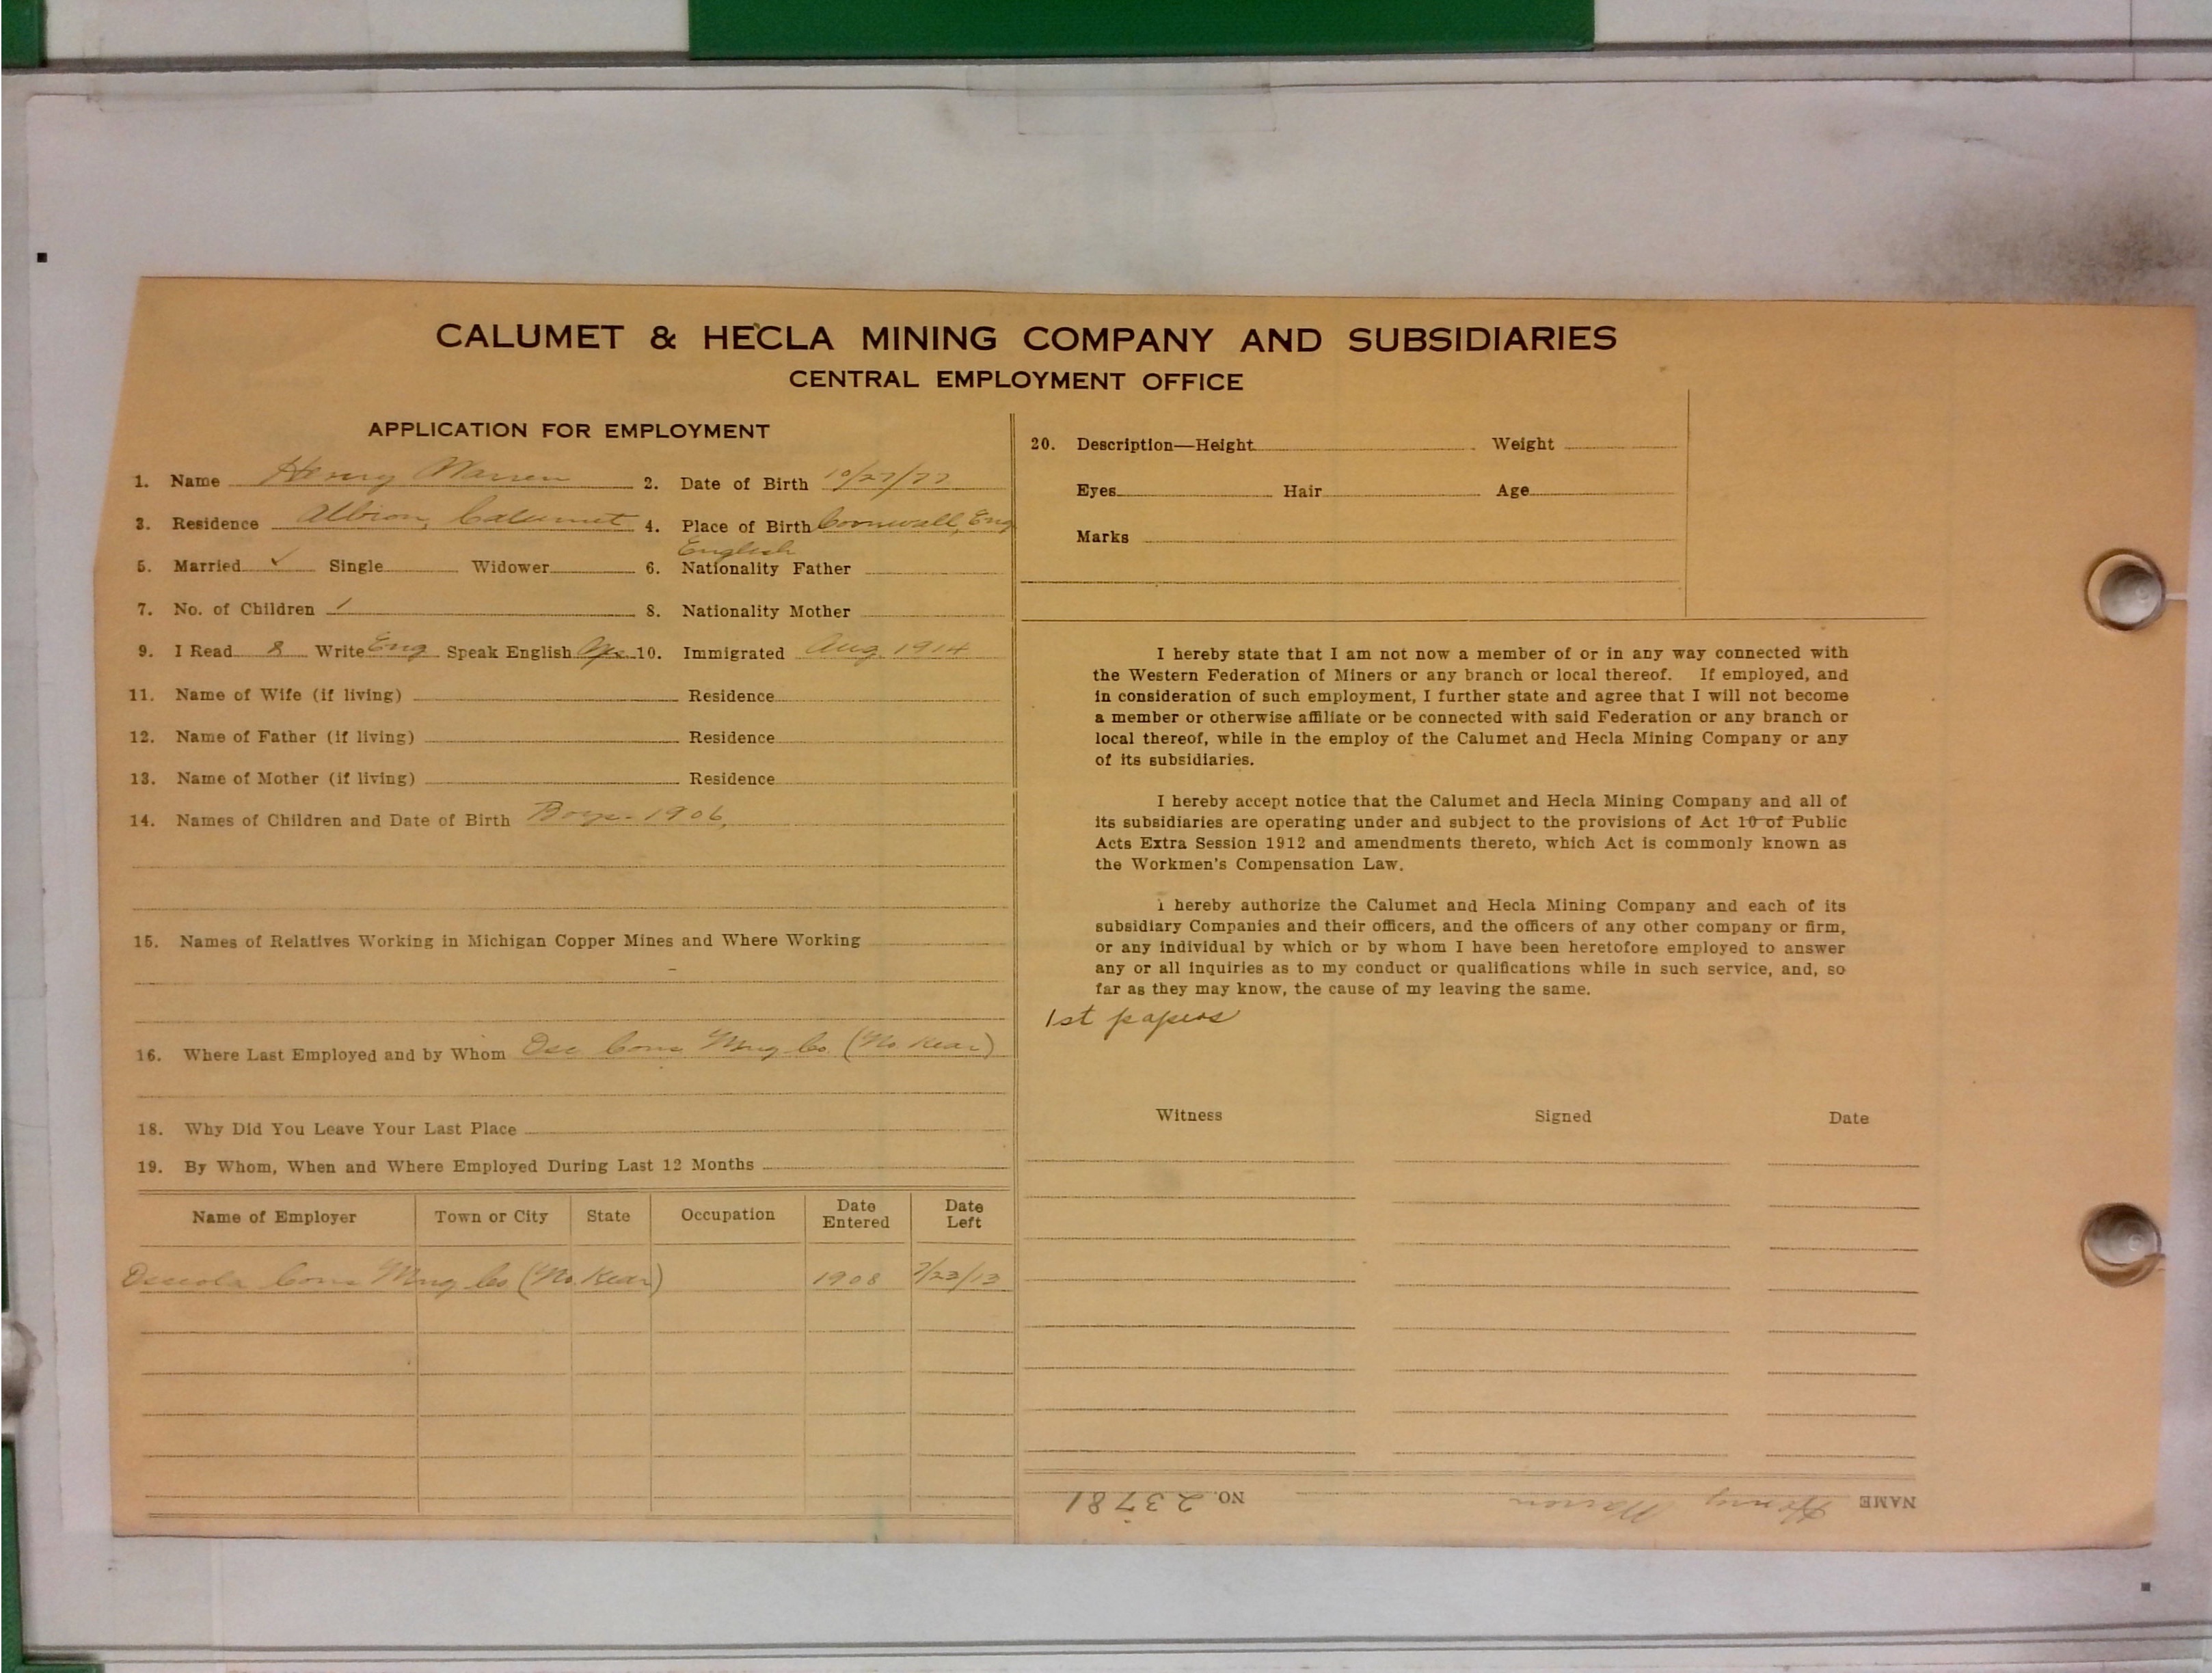 CALUMET & HECLA MINING COMPANY AND SUBSIDIARIES
CENTRAL EMPLOYMENT OFFICE
APPLICATION FOR EMPLOYMENT
1. Name Henry Warren 2. Date of Birth 10/27/77
3. Residence Albion, Calumet 4. Place of Birth Cornwall, Eng
English
5. Married ✓ Single Widower 6. Nationality Father
7. No. of Children 1 8. Nationality Mother
9. I Read & Write Eng Speak English 10. Immigrated Aug 1914
11. Name of Wife (if living) Residence
12. Name of Father (if living) Residence
13. Name of Mother (if living) Residence
14. Names of Children and Date of Birth Boy - 1906
15. Names of Relatives Working in Michigan Copper Mines and Where Working
16. Where Last Employed and by Whom Osc Cons Mng Co. (No. Kear)
18. Why Did You Leave Your Last Place
19. By Whom, When and Where Employed During Last 12 Months
Name of Employer Town or City State Occupation Date Entered Date Left
Osceola Cons Mng Co (No. Kear) 1908 7/23/13
20. Description—Height Weight
Eyes Hair Age
Marks
I hereby state that I am not now a member of or in any way connected with
the Western Federation of Miners or any branch or local thereof. If employed, and
in consideration of such employment, I further state and agree that I will not become
a member or otherwise affiliate or be connected with said Federation or any branch or
local thereof, while in the employ of the Calumet and Hecla Mining Company or any
of its subsidiaries.
I hereby accept notice that the Calumet and Hecla Mining Company and all of
its subsidiaries are operating under and subject to the provisions of Act 10 of Public
Acts Extra Session 1912 and amendments thereto, which Act is commonly known as
the Workmen's Compensation Law.
I hereby authorize the Calumet and Hecla Mining Company and each of its
subsidiary Companies and their officers, and the officers of any other company or firm,
or any individual by which or by whom I have been heretofore employed to answer
any or all inquiries as to my conduct or qualifications while in such service, and, so
far as they may know, the cause of my leaving the same.
1st papers
Witness Signed Date
NAME Henry Warren NO. 23781